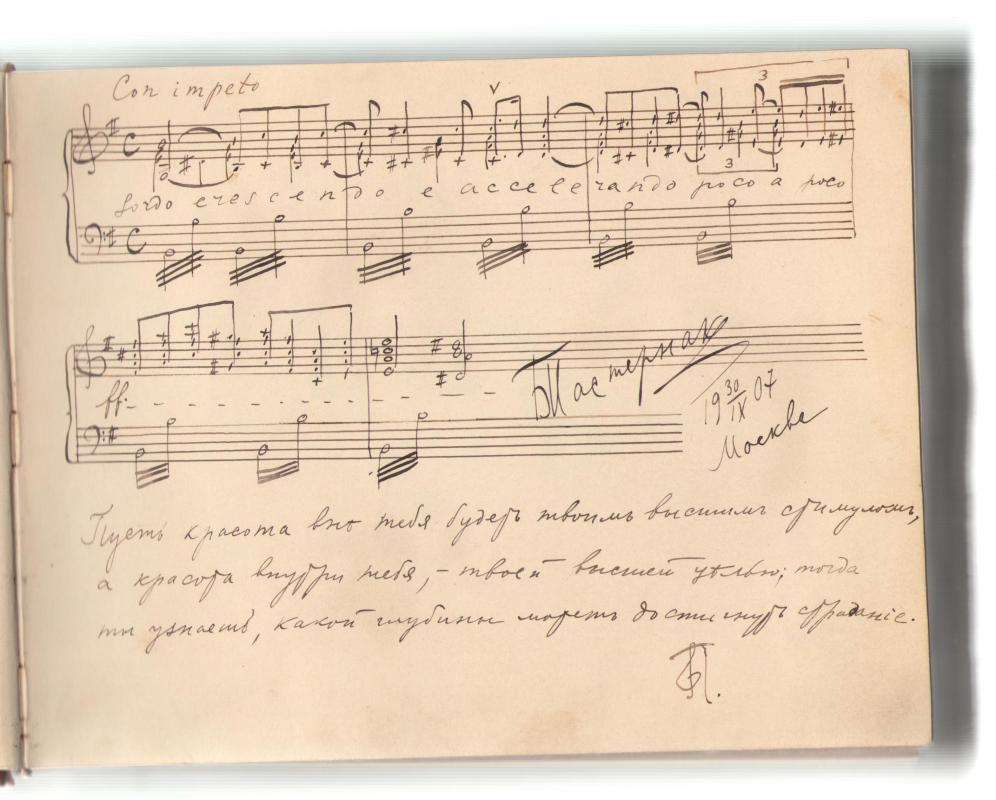 Con impeto
3
sordo crescendo e accelerando poco a poco
3
ff.
БПастернак
19 30/IX 07
Москва
Пусть красота внѣ тебя будетъ твоимъ высшимъ стимуломъ,
а красота внутри тебя, – твоей высшей цѣлью; тогда
ты узнаешь, какой глубины можетъ достигнуть страданіе.
БП.